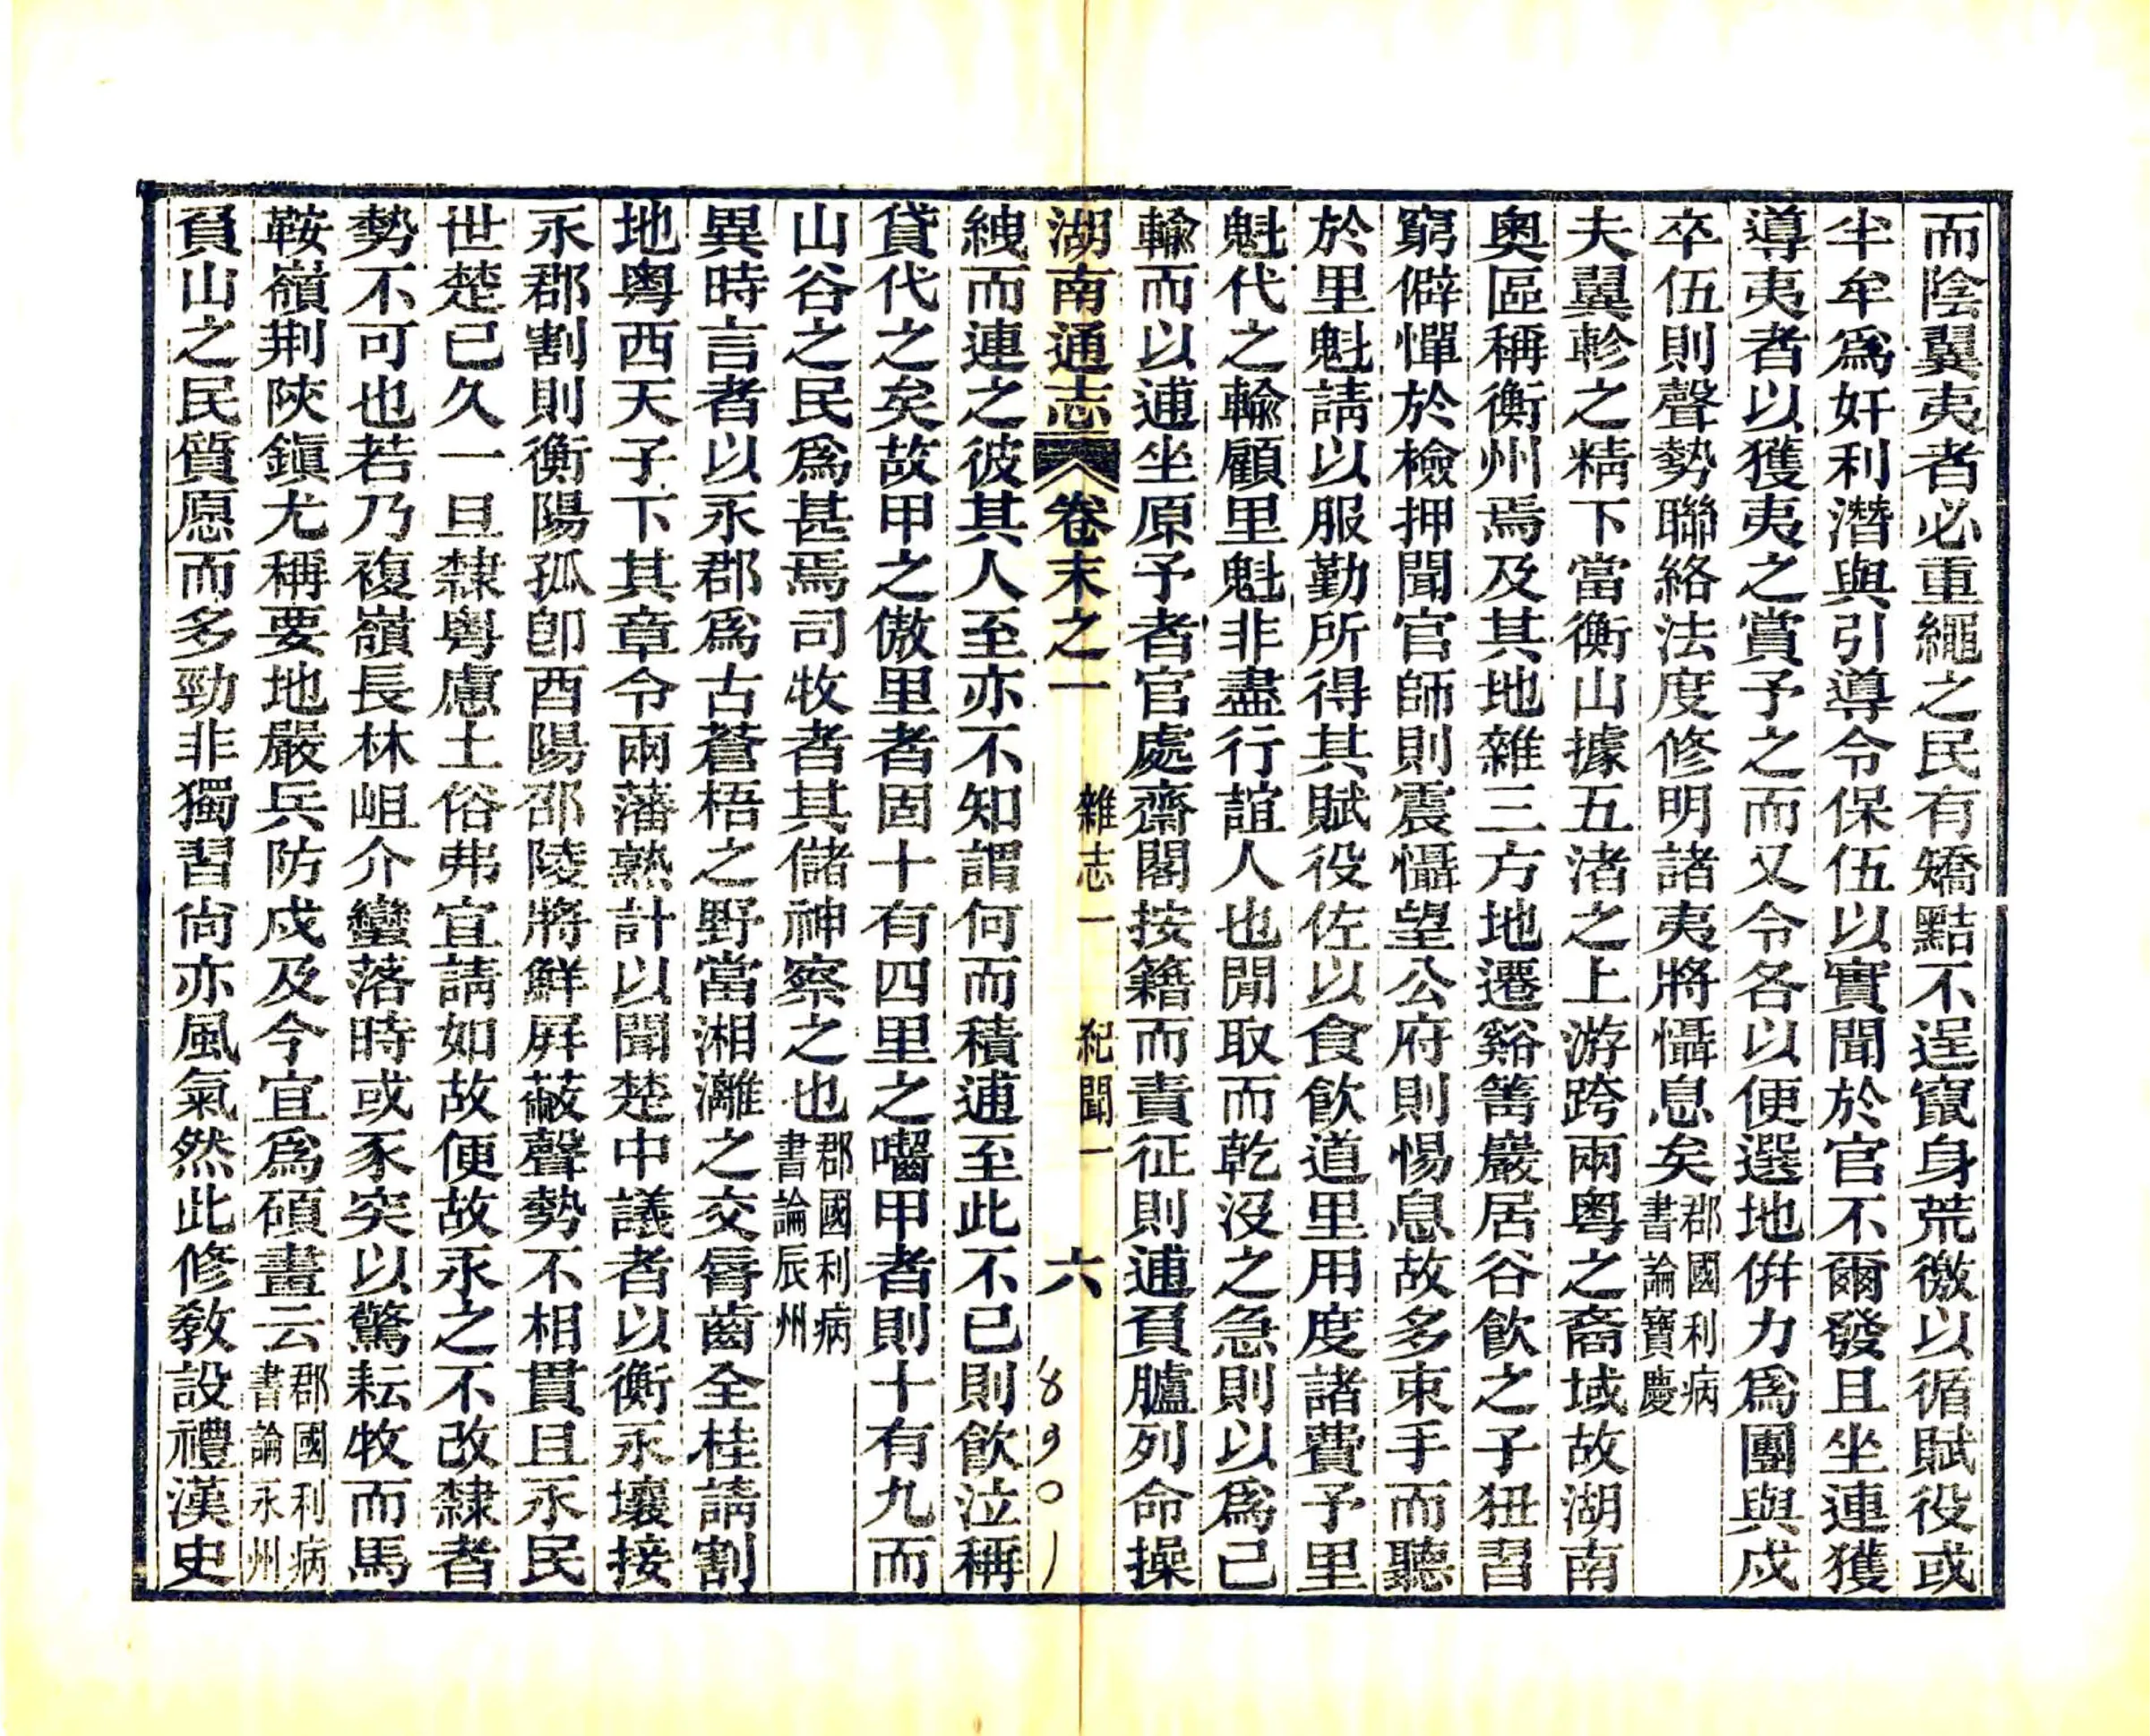 而陰翼夷者必重繩之民有矯黠不逞竄身荒徼以循賦役或
半牟爲奸利潛與引導令保伍以實聞於官不爾發且坐連獲
導夷者以獲夷之賞予之而又令各以便選地併力爲團與戍
卒伍則聲勢聯絡法度修明諸夷將懾息矣郡國利病書論寶慶
夫翼軫之精下當衡山據五渚之上游跨兩粵之裔域故湖南
奧區稱衡州焉及其地雜三方地遷谿篙巖居谷飮之子狃習
窮僻憚於檢押聞官師則震懾望公府則惕息故多束手而聽
於里魁請以服勤所得其賦役佐以食飮道里用度諸費予里
魁代之輸顧里魁非盡行誼人也閒取而乾沒之急則以爲己
輸而以逋坐原予者官處齋閣按籍而責征則逋負臚列命操
湖南通志卷末之一 雜志一 紀聞一 六 18901
絏而連之彼其人至亦不知謂何而積逋至此不已則飮泣稱
貸代之矣故甲之傲里者固十有四里之囓甲者則十有九而
山谷之民爲甚焉司牧者其儲神察之也郡國利病書論辰州
異時言者以永郡爲古蒼梧之野當湘灕之交脣齒全桂請割
地粵西天子下其章令兩藩熟計以聞楚中議者以衡永壤接
永郡割則衡陽孤卽酉陽邵陵將鮮屛蔽聲勢不相貫且永民
世楚已久一旦隸粵慮土俗弗宜請如故便故永之不改隸者
勢不可也若乃複嶺長林岨介蠻落時或豕突以驚耘牧而馬
鞍嶺荆陝鎭尤稱要地嚴兵防戍及今宜爲碩畫云郡國利病書論永州
負山之民質愿而多勁非獨習尙亦風氣然此修敎設禮漢史